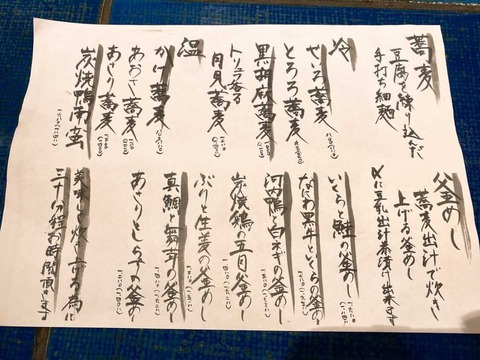 蕎麦
豆腐を練り込んだ
手打ち細麺
冷
せいろ蕎麦
とろろ蕎麦
黒胡麻蕎麦
トリュフ香る
月見蕎麦
温
かけ蕎麦
あおさ蕎麦
あさり蕎麦
炭焼鴨南蛮
釜めし
蕎麦出汁で炊き
上げる釜めし
〆に豆乳出汁茶漬け出来ます
いくらと鮭の釜めし
なにわ黒牛といくらの釜めし
河内鴨と白ネギの釜めし
炭焼鶏の五目釜めし
ぶりと生姜の釜めし
真鯛と舞茸の釜めし
あさりとしらすの釜めし
美味しく炊き上げる為に
三十分程お時間頂きます